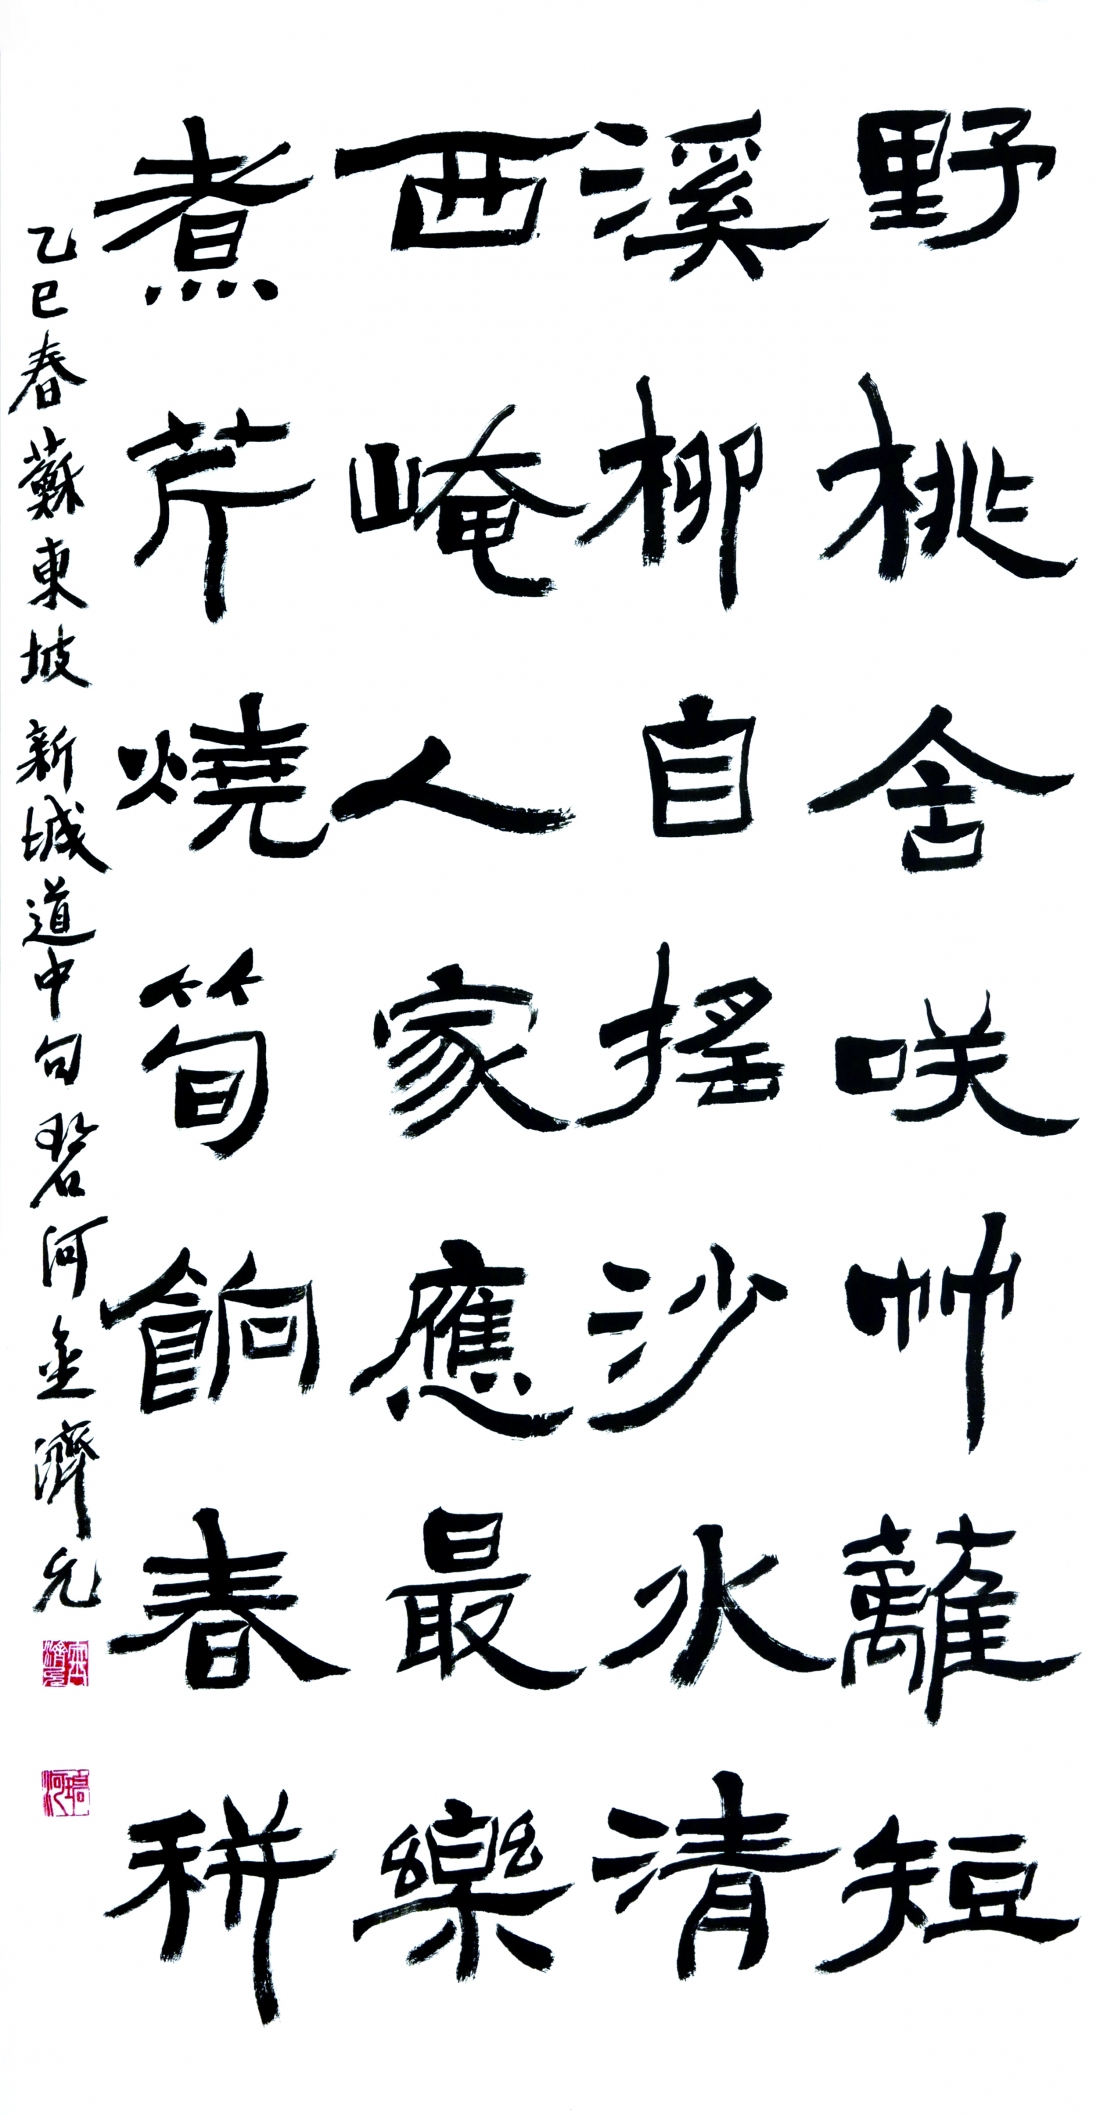 野桃含咲竹籬短
溪柳自搖沙水清
西崦人家應最樂
煮芹燒筍餉春耕
乙巳春蘇東坡新城道中句碧河金濟元